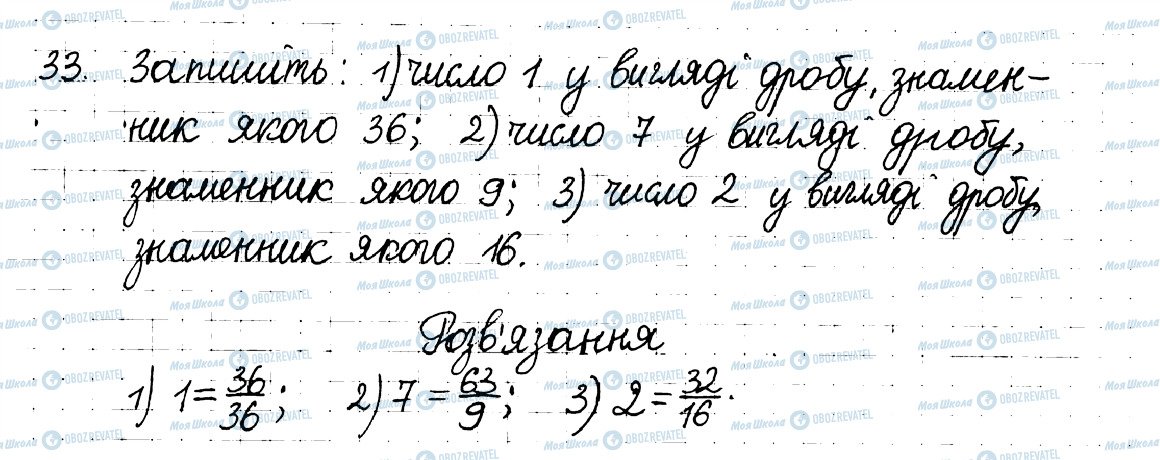 33. Запишіть: 1) число 1 у вигляді дробу, знамен-
ник якого 36; 2) число 7 у вигляді дробу,
знаменник якого 9; 3) число 2 у вигляді дробу,
знаменник якого 16.
Розв'язання
1) 1 = 36/36; 2) 7 = 63/9; 3) 2 = 32/16.